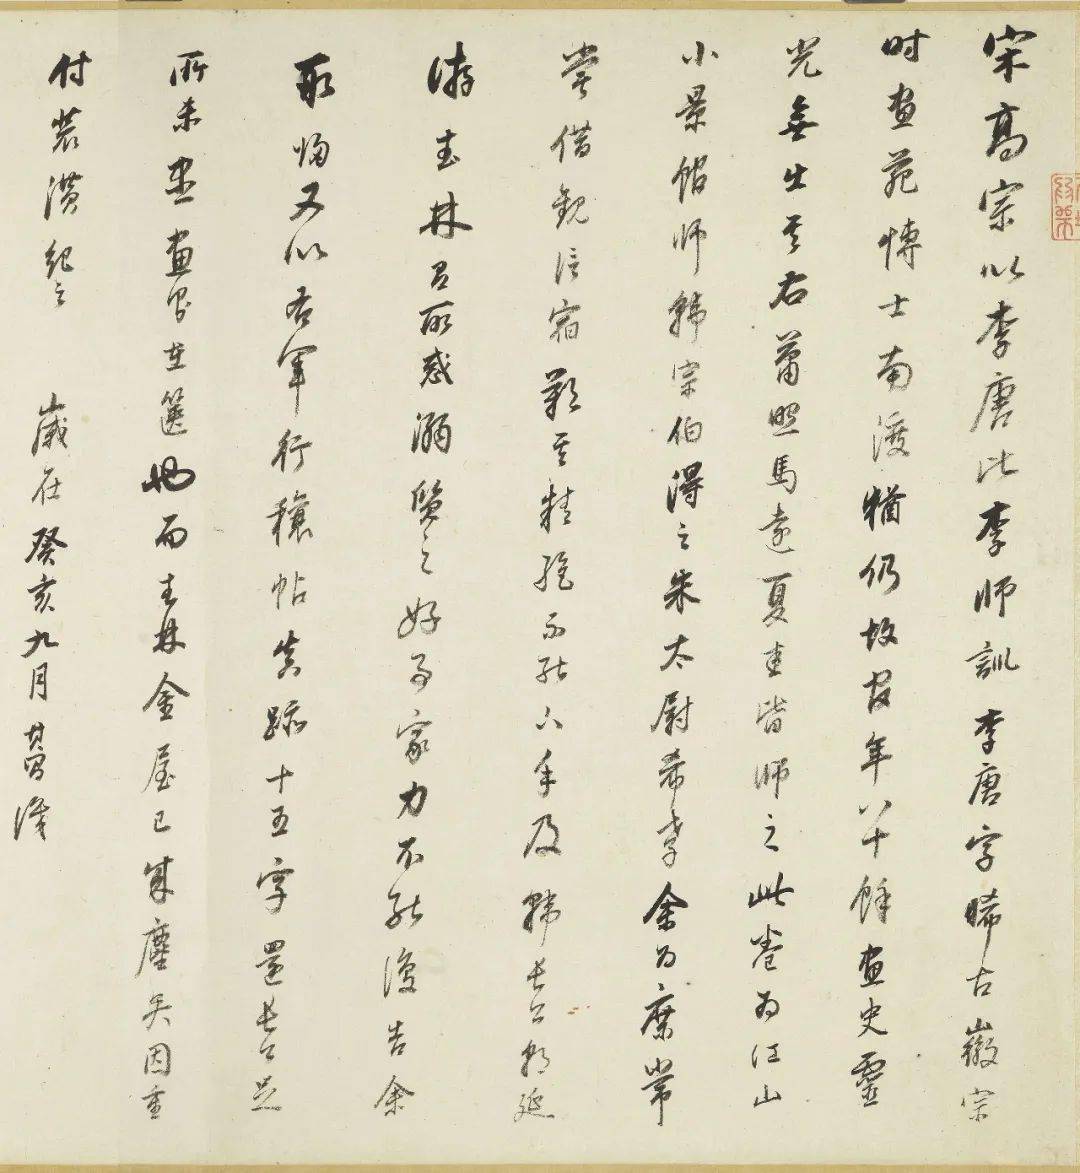 宋高宗以李唐比李师訓李唐字晞古徽宗
时畫苑博士南渡猶仍故官年八十餘畫史靈
光無出其右蕭照馬遠夏圭皆师之此卷為江山
小景館师韓宗伯得之朱太尉希孝余為庶常
嘗借觀信宿歎其精絕不能去手及韓長公朝延
游林君所惑溺質之好事家力不能復告余
取歸又以右軍行穰帖真跡十五字還長公足
所未盡畫在篋也而林金屋已成塵矣因重
付裝潢紀之 歲在癸亥九月其昌識